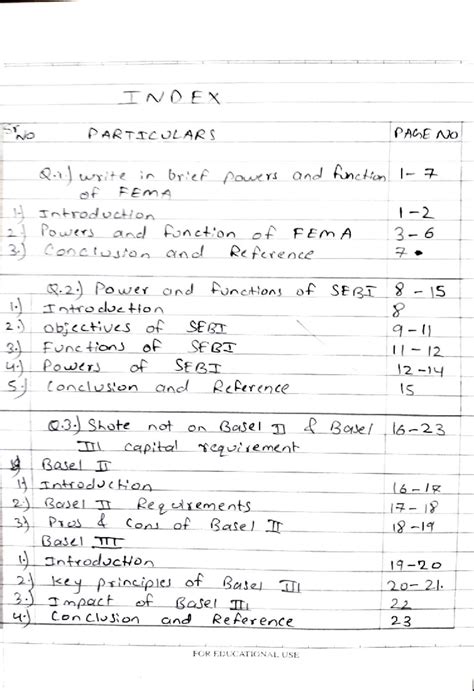 INDEX
Sr No PARTICULARS PAGE NO
Q.1) write in brief powers and function 1-7
of FEMA
1) Introduction 1-2
2) Powers and function of FEMA 3-6
3.) Conclusion and Reference 7
Q.2.) Power and functions of SEBI 8-15
1.) Introduction 8
2.) objectives of SEBI 9-11
3.) Functions of SEBI 11-12
4.) Powers of SEBI 12-14
5.) Conclusion and Reference 15
Q.3.) Shote not on Basel II & Basel 16-23
III capital requirement
Basel II
1) Introduction 16-17
2.) Basel II Requirements 17-18
3) Pros & Cons of Basel II 18-19
Basel III
1.) Introduction 19-20
2) key principles of Basel III 20-21.
3.) Impact of Basel III 22
4.) Conclusion and Reference 23
FOR EDUCATIONAL USE